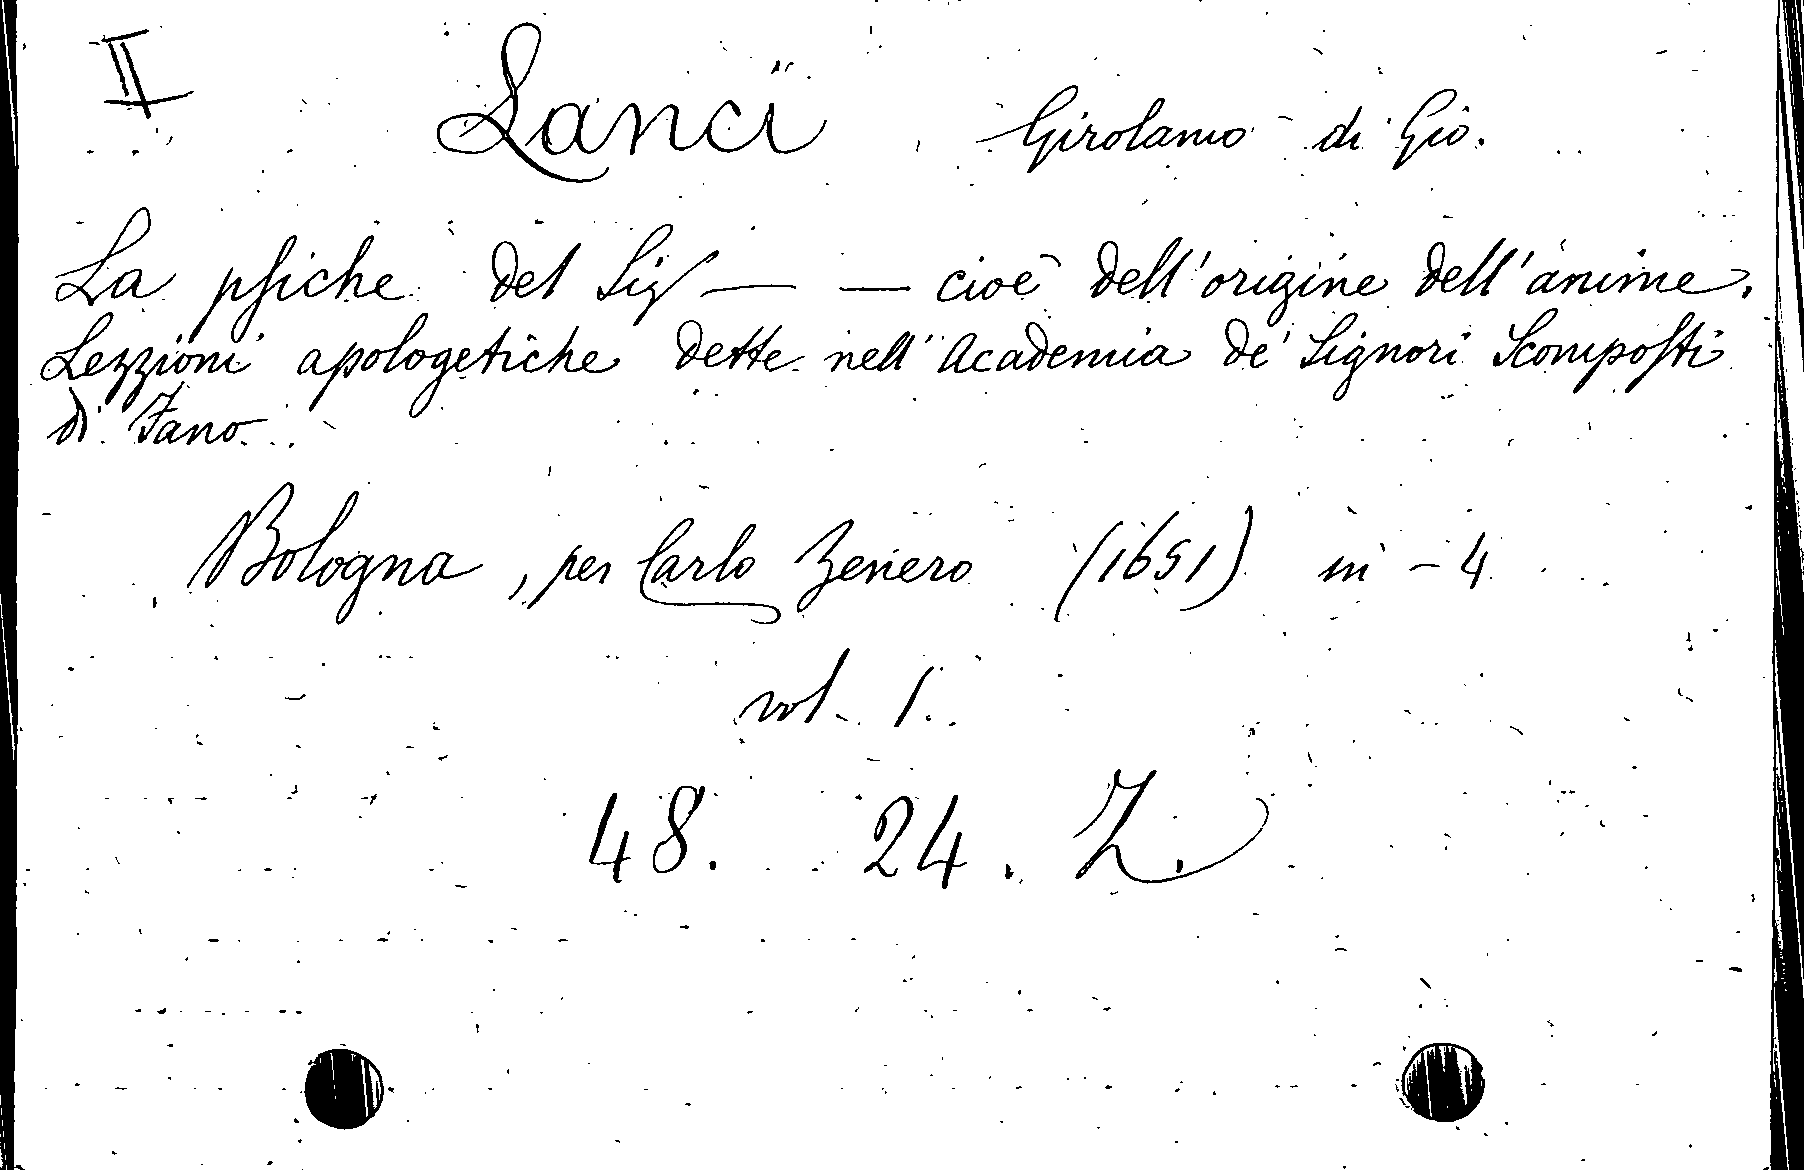 II
Lanci Girolamo di Gio.
La psiche del Sig — — cioè dell'origine dell'anime.
Lezzioni apologetiche dette nell'Academia de' Signori Scomposti
di Fano.
Bologna, per Carlo Zenero (1651) in - 4
vol. 1.
48. 24. Z.